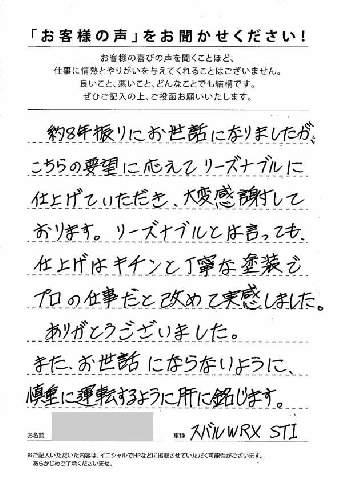 「お客様の声」をお聞かせください！
お客様の喜びの声を聞くことほど、
仕事に情熱とやりがいを与えてくれることはございません。
良いこと、悪いこと、どんなことでも結構です。
ぜひご記入の上、ご投函お願いいたします。
約8年振りにお世話になりましたが、
こちらの要望に応えてリーズナブルに
仕上げていただき、大変感謝して
おります。リーズナブルとは言っても、
仕上げはキチンと丁寧な塗装で
プロの仕事だと改めて実感しました。
ありがとうございました。
また、お世話にならないように、
慎重に運転するように肝に銘じます。
お名前 車種 スバルWRX STI
※ご記入いただいた内容は、イニシャルでHPなどに掲載させていただく可能性がございます。
あらかじめご了承くださいませ。